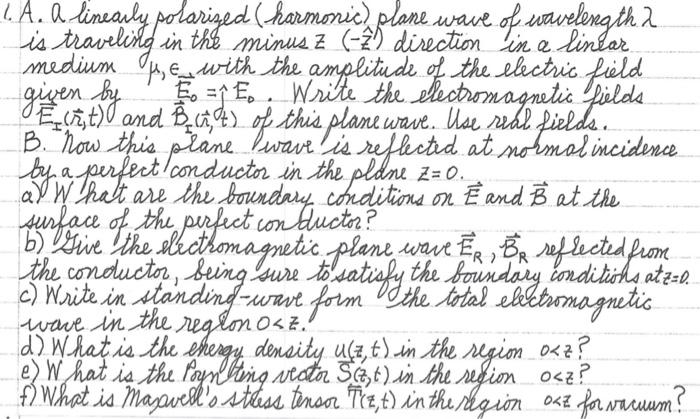 1. A. A linearly polarized (harmonic) plane wave of wavelength λ
is traveling in the minus z (-ẑ) direction in a linear
medium μ, ϵ with the amplitude of the electric field
given by E⃗₀ = î E₀. Write the electromagnetic fields
E⃗_I(r⃗,t) and B⃗_I(r⃗,t) of this plane wave. Use real fields.
B. Now this plane wave is reflected at normal incidence
by a perfect conductor in the plane z=0.
a) What are the boundary conditions on E⃗ and B⃗ at the
surface of the perfect conductor?
b) Give the electromagnetic plane wave E⃗_R, B⃗_R reflected from
the conductor, being sure to satisfy the boundary conditions at z=0.
c) Write in standing-wave form the total electromagnetic
wave in the region 0<z.
d) What is the energy density u(z,t) in the region 0<z?
e) What is the Poynting vector S⃗(z,t) in the region 0<z?
f) What is Maxwell's stress tensor T(z,t) in the region 0<z for vacuum?